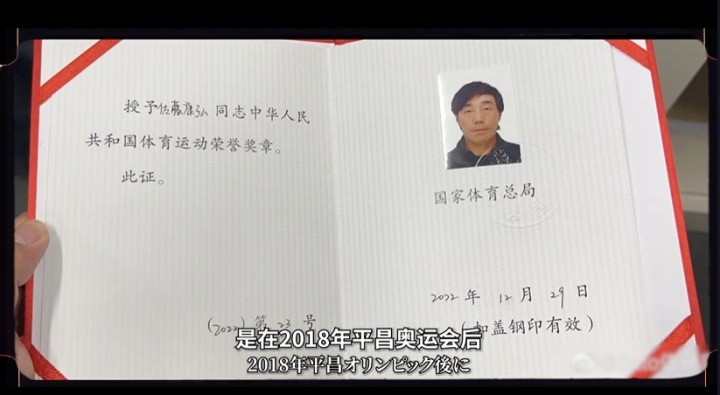 授予佐藤康弘同志中华人民
共和国体育运动荣誉奖章。
此证。
国家体育总局
2022年12月29日
(加盖钢印有效)
(2022)第23号
是在2018年平昌奥运会后
2018年平昌オリンピック後に